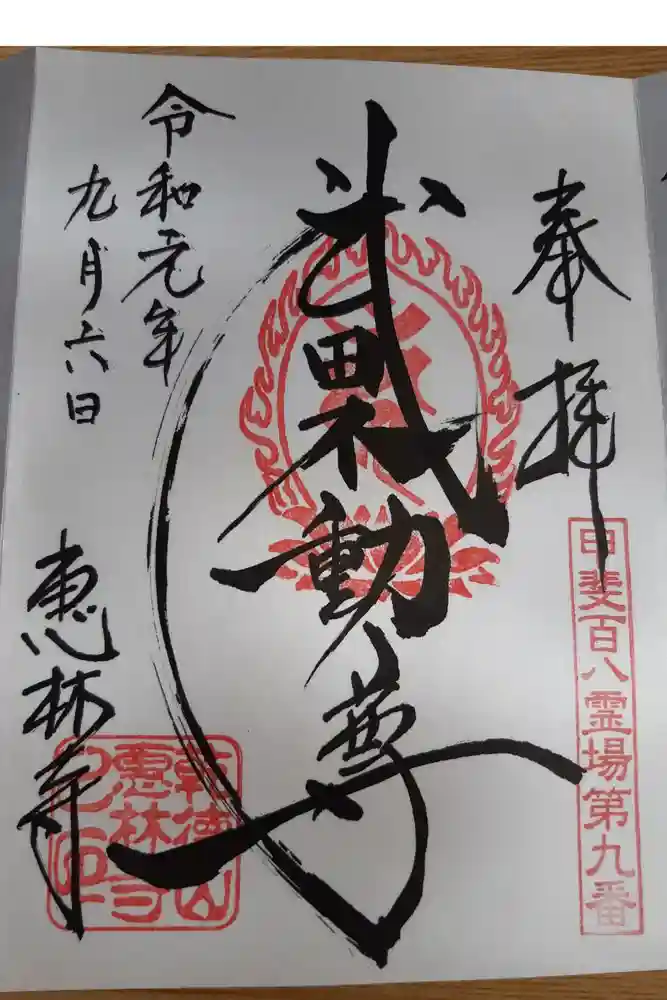 奉拝
甲斐百八霊場第九番
武田不動尊
令和元年
九月六日
恵林寺
乾徳山
惠林寺